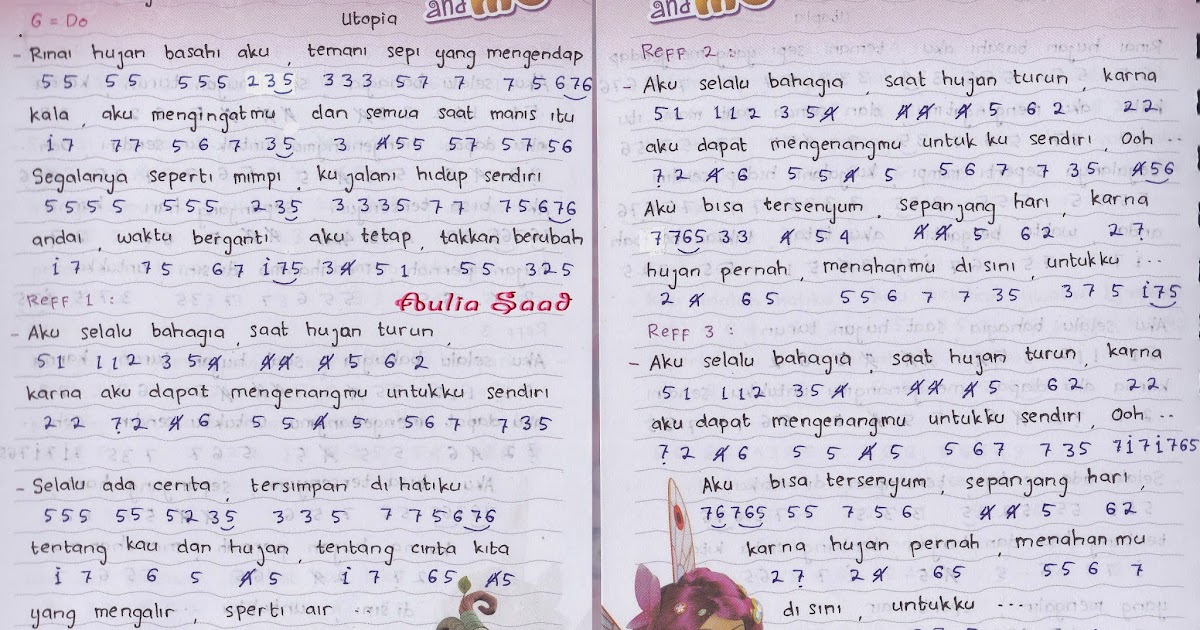 and me
G = Do
Utopia
- Rinai hujan basahi aku, temani sepi yang mengendap
55 55 555 235 333 57 7 7 5 676
kala, aku mengingatmu, dan semua saat manis itu
i7 77 567 35 3 4̸55 57 5756
Segalanya seperti mimpi, kujalani hidup sendiri
5555 555 235 3335 77 75676
andai, waktu berganti, aku tetap, takkan berubah
i7 75 67 i75 34̸ 51 55 325
Reff 1 :
Aulia Saad
- Aku selalu bahagia, saat hujan turun,
51 112 3 54̸ 4̸4̸ 4̸5 62
karna aku dapat mengenangmu untukku sendiri
22 7̣2 4̸6 5 5 4̸ 5 567 7 35
- Selalu ada cerita, tersimpan di hatiku
555 55 5235 335 7 75676
tentang kau dan hujan, tentang cinta kita
i7 6 5 4̸5 i7 65 4̸5
yang mengalir, sperti air ...
and me
Reff 2 :
- Aku selalu bahagia, saat hujan turun, karna
51 112 3 54̸ 4̸4̸ 4̸5 62 22
aku dapat mengenangmu untuk ku sendiri, Ooh ..
7̣2 4̸6 5 5 4̸ 5 567 7 35 4̸56
Aku bisa tersenyum, sepanjang hari, karna
7765 33 4̸ 5 4 4̸4̸ 5 62 27̣
hujan pernah, menahanmu di sini, untukku ...
2 4̸ 65 5567 7 35 375 i75
Reff 3 :
- Aku selalu bahagia, saat hujan turun, karna
51 112 354̸ 4̸4̸ 4̸5 62 22
aku dapat mengenangmu untukku sendiri, Ooh ..
7̣2 4̸6 5 5 4̸ 5 567 735 7i7i765
Aku bisa tersenyum, sepanjang hari,
76765 55 756 4̸4̸5 62
karna hujan pernah, menahanmu
27̣ 24̸ 65 5567
di sini, untukku ...